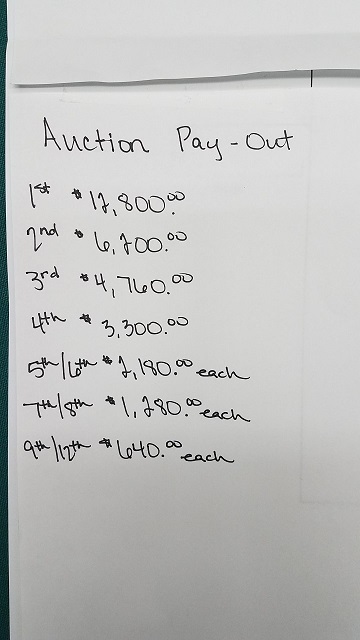 Auction Pay-Out
1st $12,800.00
2nd $6,200.00
3rd $4,760.00
4th $3,300.00
5th/6th $2,180.00 each
7th/8th $1,280.00 each
9th/12th $640.00 each